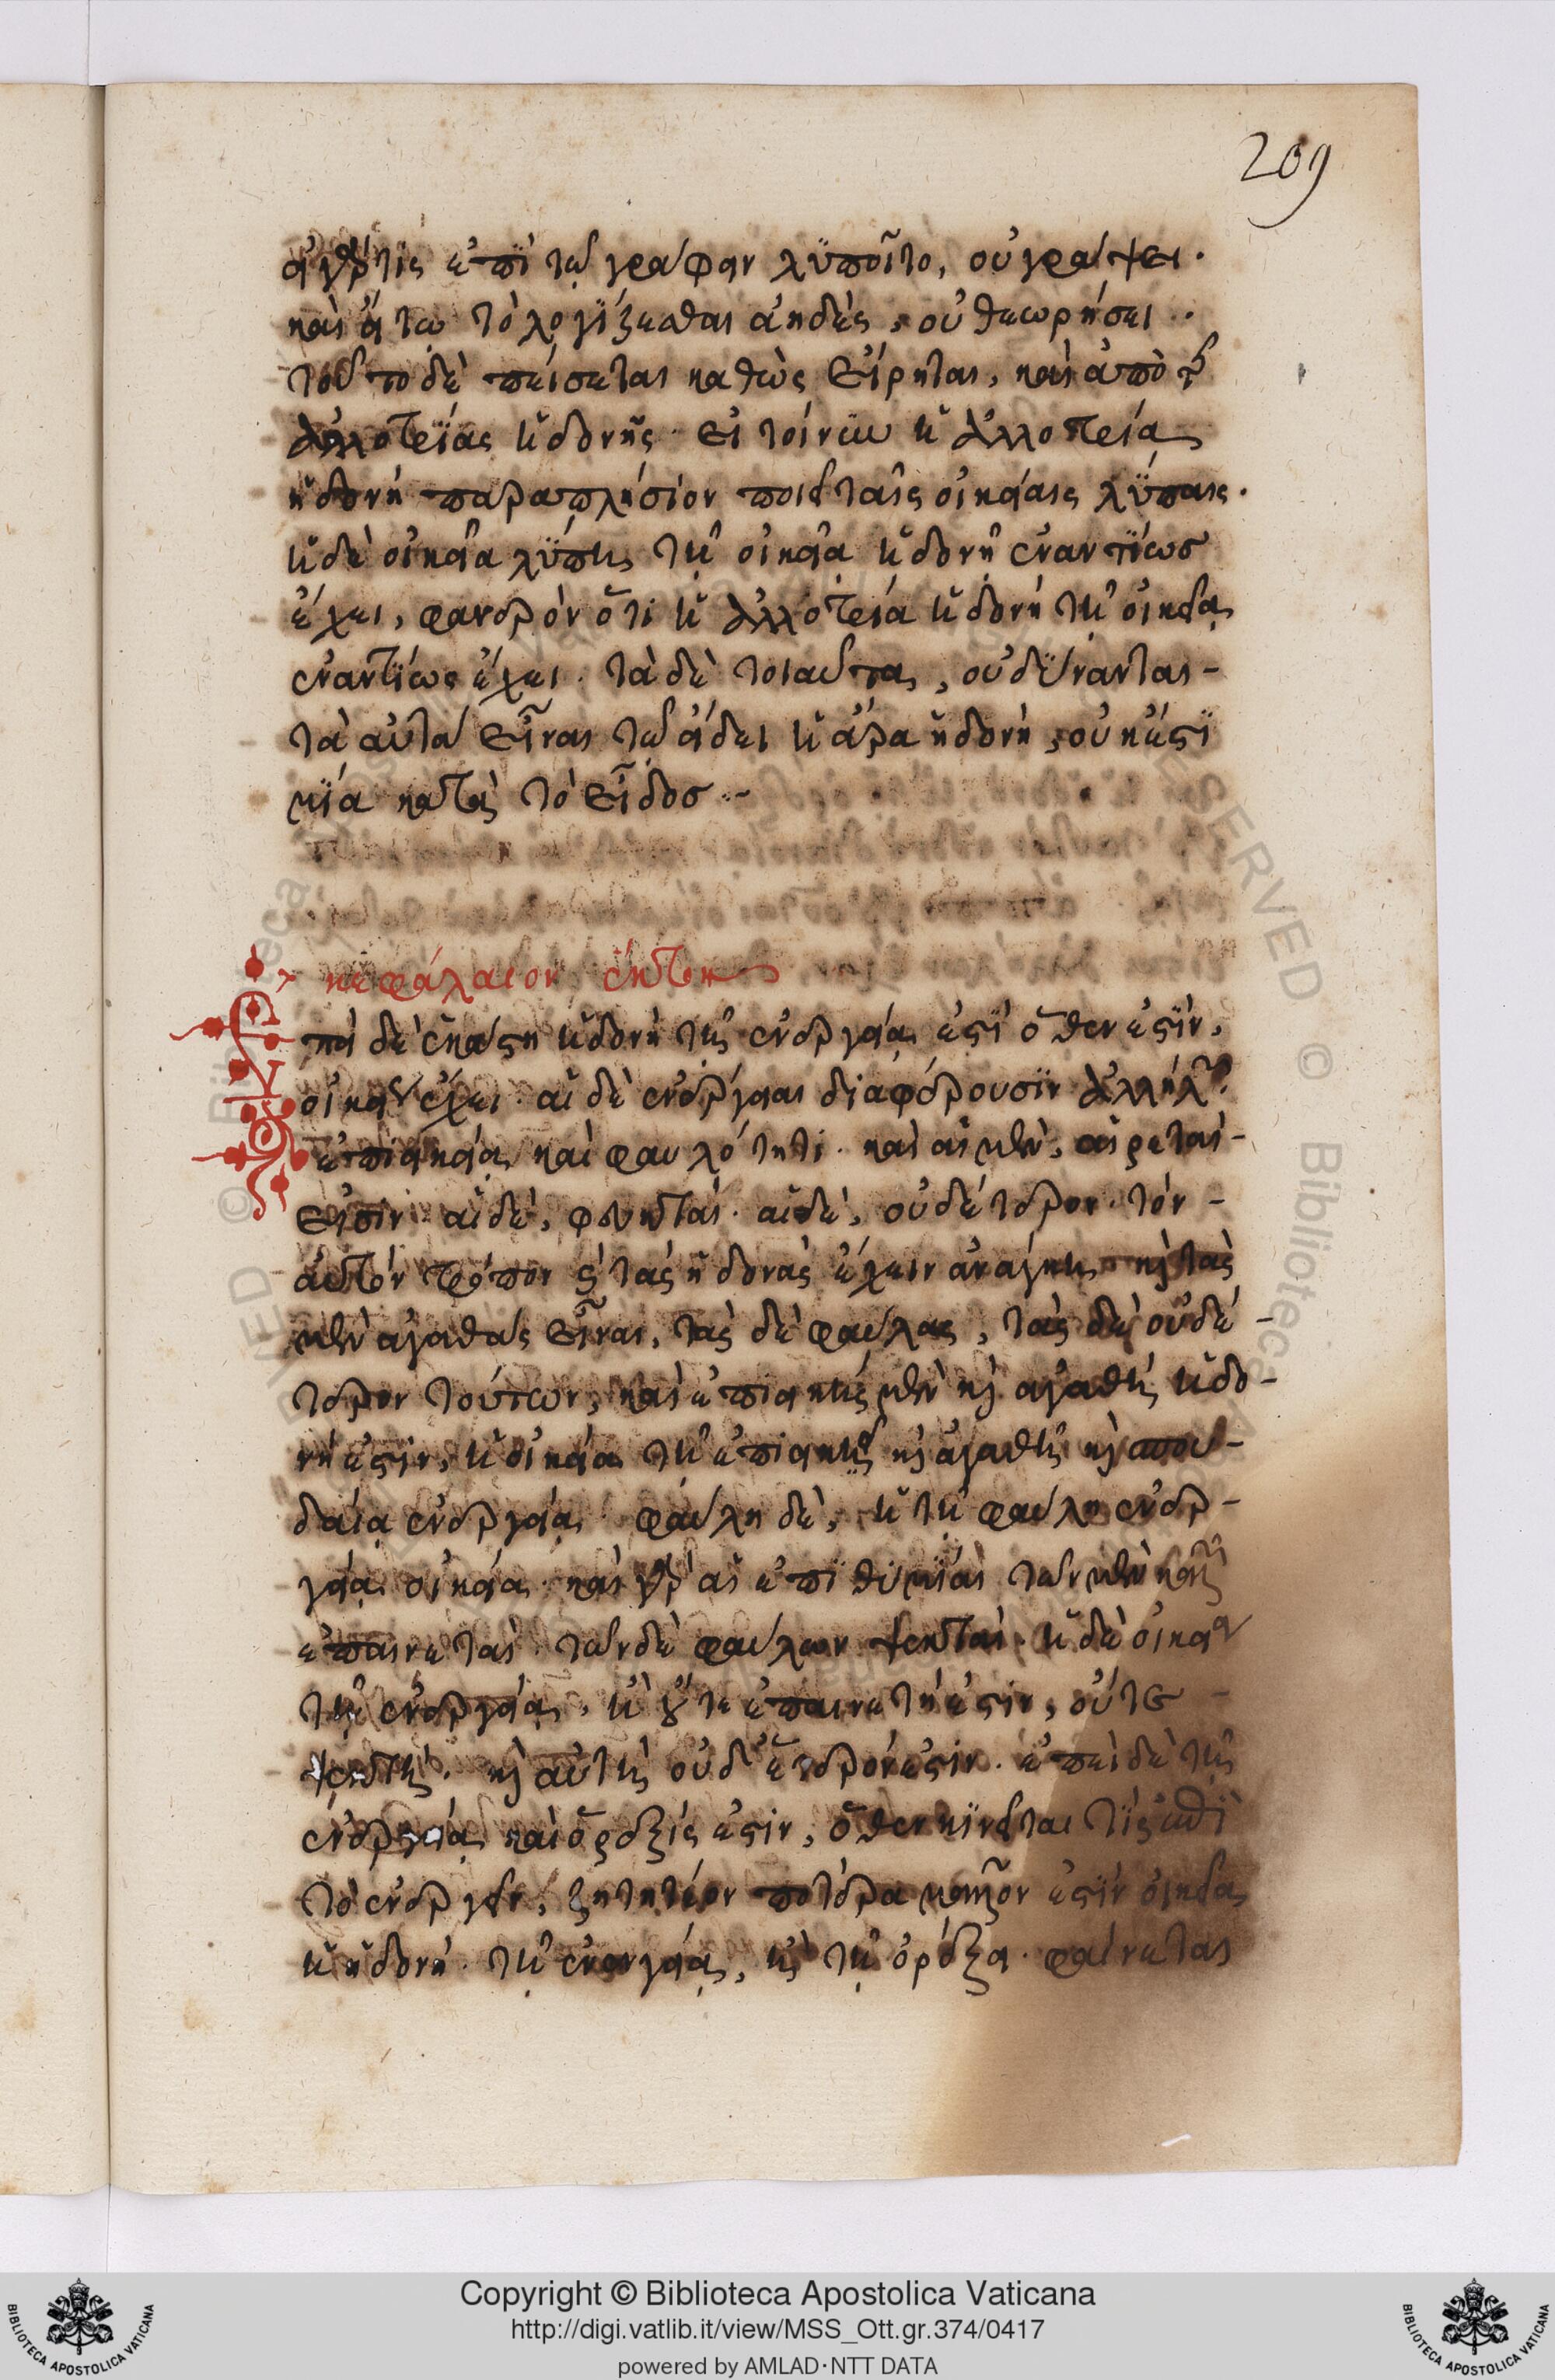 209
εἰ γάρ τις ἐπὶ τῷ γράφειν λϋποῖτο, οὐ γράψει.
καὶ εἴ τῳ τὸ λογΐζεσθαι ἀηδὲς, οὐ θεωρήσει..
τοῦτο δὲ πείσεται καθὼς εἴρηται, καὶ ἀπὸ τῆς
ἀλλοτρίας ἡδονῆς. εἰ τοίνϋν ἡ ἀλλοτρία
ἡδονὴ παραπλήσιον ποιεῖ ταῖς οἰκείαις λύπαις.
ἡ δὲ οἰκεία λύπη τῇ οἰκεία ἡδονῇ ἐναντίως
ἔχει, φανερὸν ὅτι ἡ ἀλλοτρία ἡδονὴ τῇ οἰκείᾳ
ἐναντίως ἔχει. τὰ δὲ τοιαῦτα, οὐ δύνανται-
τὰ αὐτὰ εἶναι τῷ εἴδει ἡ ἄρα ἡδονὴ, οὐκ ἔστϊ
μία κατὰ τὸ εἶδος..-
κεφάλαιον ἕκτον
Ἐπεὶ δὲ ἑκάστη ἡδονὴ τῆς ἐνεργείας ἐστὶ ὅθεν ἐστὶν,
οἰκεῖον ἔχει. αἱ δὲ ἐνέργειαι διαφέρουσιν ἀλλήλων
ἐπιεικεία καὶ φαυλότητι. καὶ αἱ μὲν, αἱρεταὶ-
εἰσιν. αἱ δὲ, φευκταὶ. αἱ δὲ, οὐδέτερον. τὸν-
αὐτὸν τρόπον καὶ τὰς ἡδονὰς ἔχειν ἀνάγκη καὶ τὰς
μὲν ἀγαθὰς εἶναι, τὰς δὲ φαύλας, τὰς δὲ οὐδέ-
τερον τούτων, καὶ ἐπιεικὴς μὲν καὶ ἀγαθὴ ἡδο-
νή ἐστιν, ἡ οἰκεία τῇ ἐπιεικεῖ καὶ ἀγαθῇ καὶ σπου-
δαίᾳ ἐνεργείᾳ. φαύλη δὲ, ἡ τῇ φαύλη ἐνερ-
γείᾳ οἰκεία. καὶ γὰρ αἱ ἐπιθυμίαι τῶν μὲν καλῶν
ἐπαινεταὶ. τῶν δὲ φαύλων ψεκταὶ. ἡ δὲ οἰκεία
τῇ ἐνεργείᾳ, ἣ οὔτε ἐπαινετή ἐστιν, οὔτε-
ψεκτὴ. καὶ αὐτὴ οὐδέτερόν ἐστιν. ἐπεὶ δὲ τῆς
ἐνεργείας καὶ ὄρεξίς ἐστιν, ὅθεν κινεῖται τὶς ἐπὶ
τὸ ἐνεργεῖν, ζητητέον ποτέρα μᾶλλον ἐστὶν οἰκεία
ἡ ἡδονὴ. τῇ ἐνεργείᾳ, ἢ τῇ ὀρέξει. φαίνεται
Copyright © Biblioteca Apostolica Vaticana
http://digi.vatlib.it/view/MSS_Ott.gr.374/0417
powered by AMLAD·NTT DATA